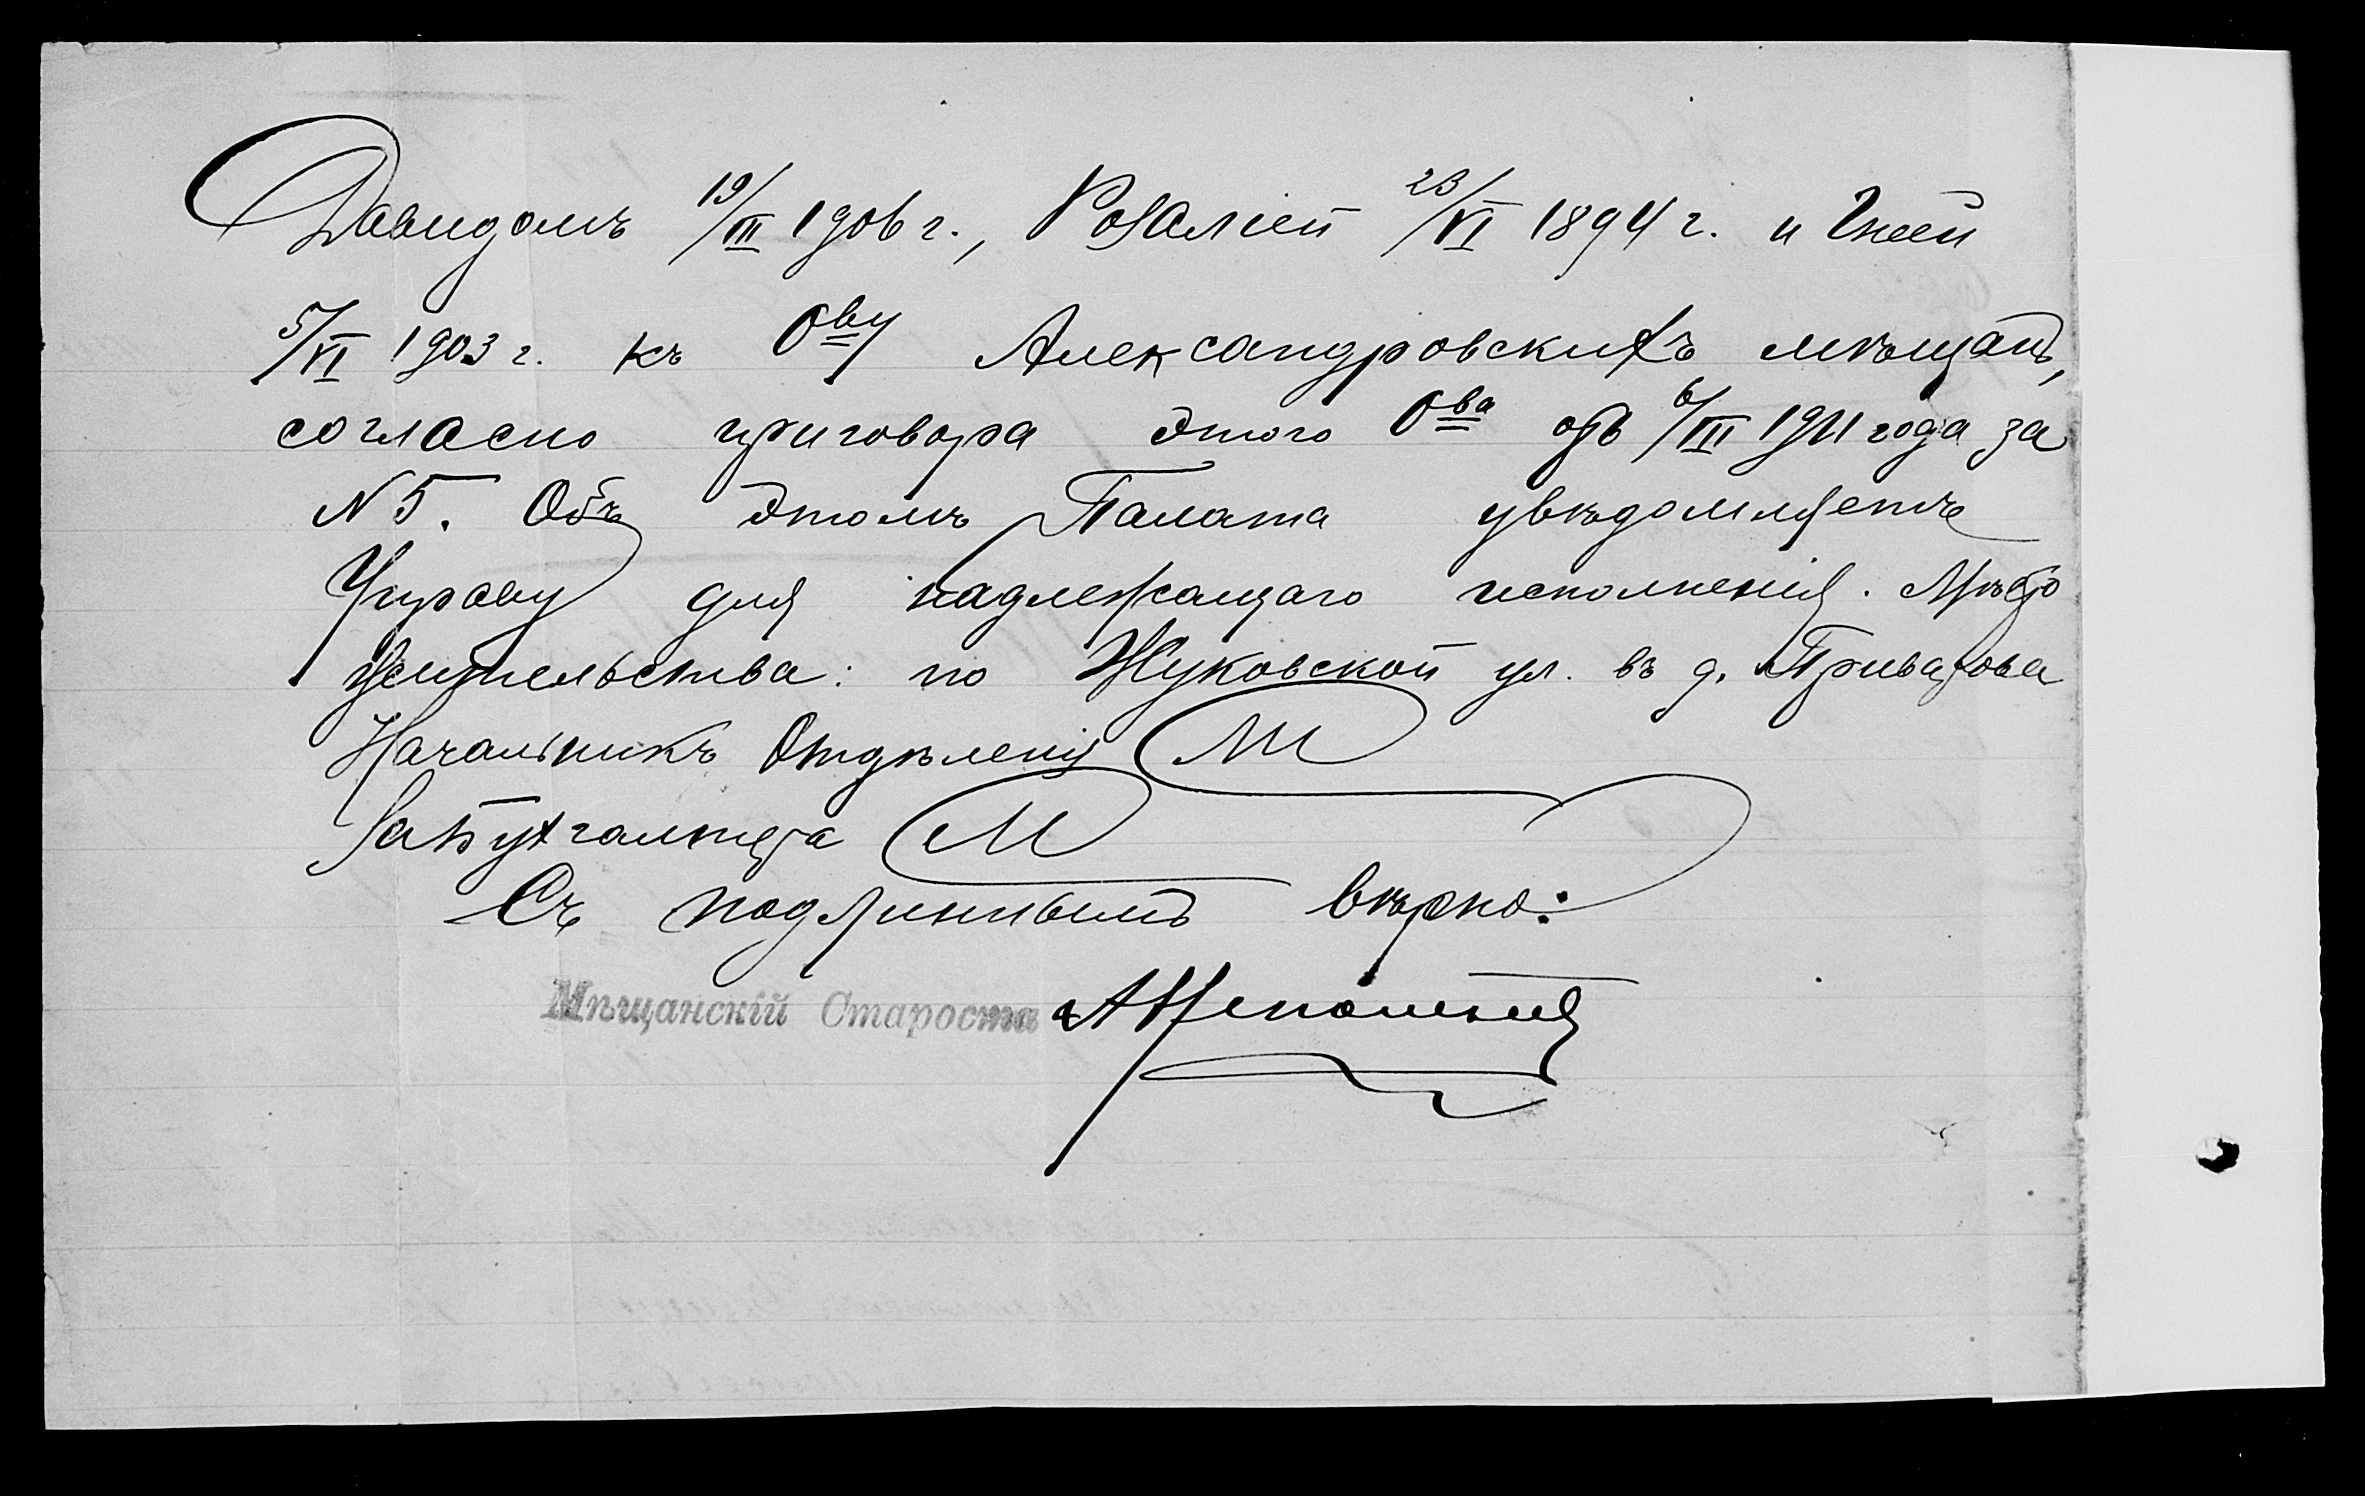 Давидомъ 19/III 1906 г., Розаліей 23/VI 1894 г. и Гнеей
5/VI 1903 г. къ Ову Александровскихъ мѣщанъ,
согласно приговора этого Ова отъ 6/III 1911 года за
N 5. Объ этомъ Палата увѣдомляетъ
Управу для надлежащаго исполненія. Мѣсто
жительства: по Жуковской ул. въ д. Приватова
Начальникъ Отдѣленія
За Бухгалтера
Съ подлиннымъ вѣрно:
Мѣщанскій Староста